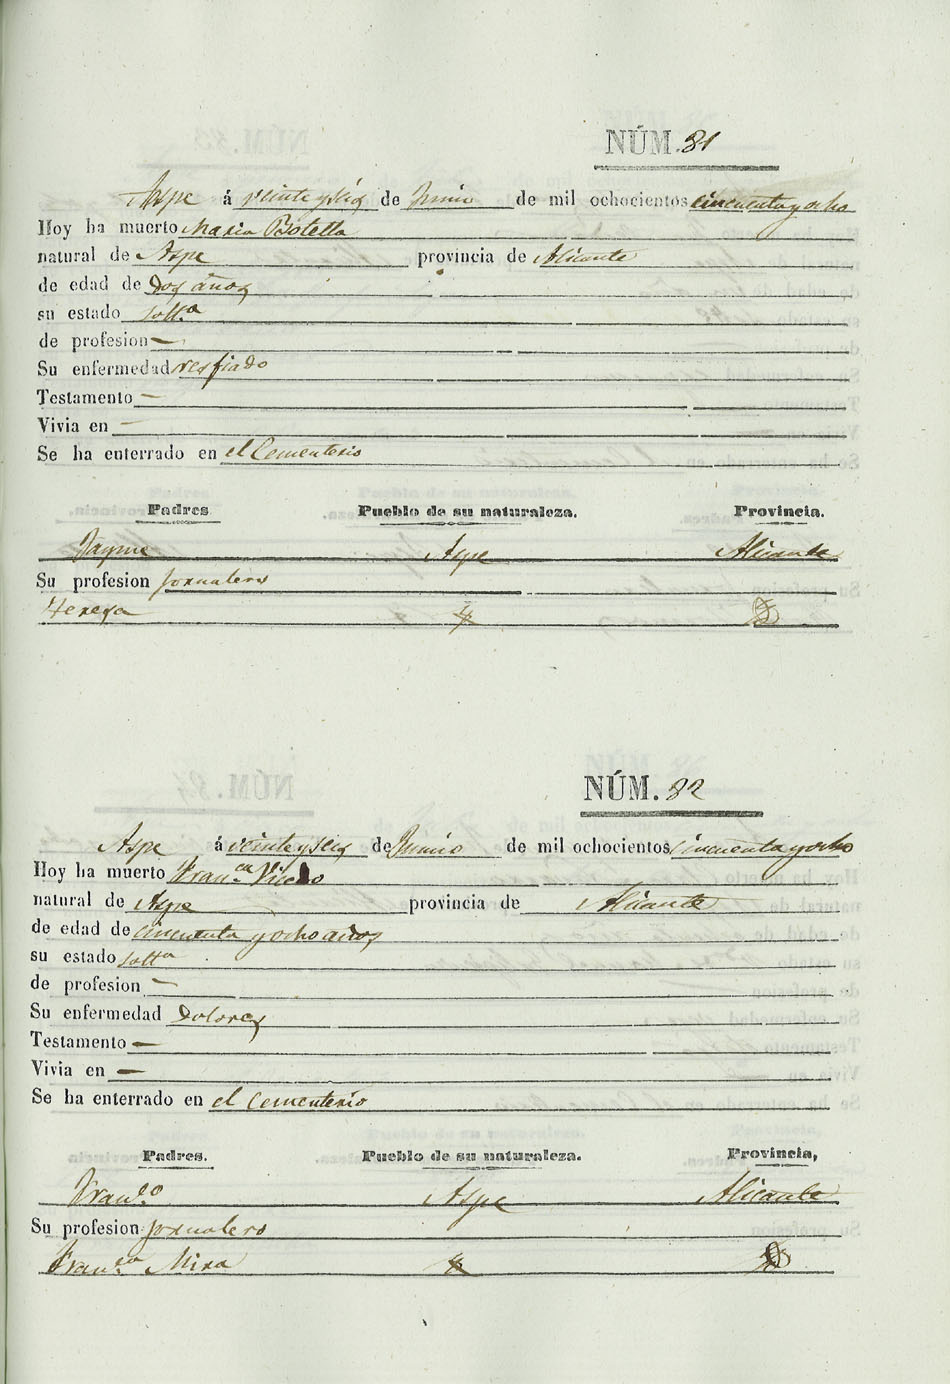 NÚM. 81
Aspe á veinte y seis de Junio de mil ochocientos cincuenta y ocho
Hoy ha muerto Maria Botella
natural de Aspe provincia de Alicante
de edad de Dos años
su estado solt.a
de profesion —
Su enfermedad resfriado
Testamento —
Vivia en —
Se ha enterrado en el Cementerio
Padres Pueblo de su naturaleza. Provincia.
Jayme Aspe Alicante
Su profesion jornalero
Teresa
NÚM. 82
Aspe á veinte y seis de Junio de mil ochocientos cincuenta y ocho
Hoy ha muerto Fran.ca
natural de Aspe provincia de Alicante
de edad de cincuenta y ocho años
su estado solt.a
de profesion —
Su enfermedad Dolores
Testamento —
Vivia en —
Se ha enterrado en el Cementerio
Padres. Pueblo de su naturaleza. Provincia,
Fran.co Aspe Alicante
Su profesion jornalero
Fran.ca Mira